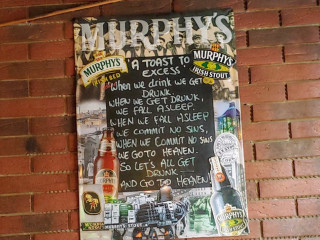 MURPHY'S
MURPHY'S
IRISH RED
MURPHY'S
IRISH STOUT
'A TOAST TO
EXCESS'
"WHEN WE DRINK WE GET
DRUNK,
WHEN WE GET DRUNK,
WE FALL ASLEEP.
WHEN WE FALL ASLEEP
WE COMMIT NO SINS,
WHEN WE COMMIT NO SINS
WE GO TO HEAVEN.
SO LET'S ALL GET
DRUNK
AND GO TO HEAVEN!